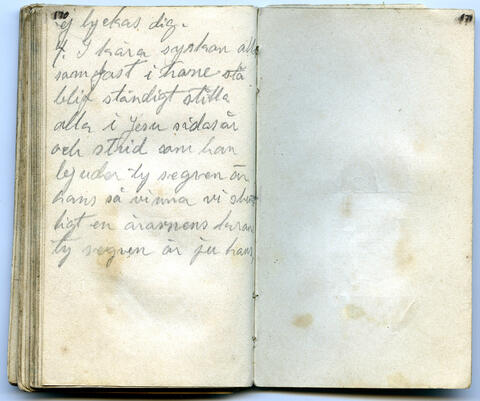 170
171
ej lyckas dig.
4. I kära syskon alla
som fast i hane stå
blif ständigt stilla
alla i Jesu sidasår
och strid som han
bjuder ty segren är
hans så vinna vi
ligt en ärannens kran
ty segren är ju hans